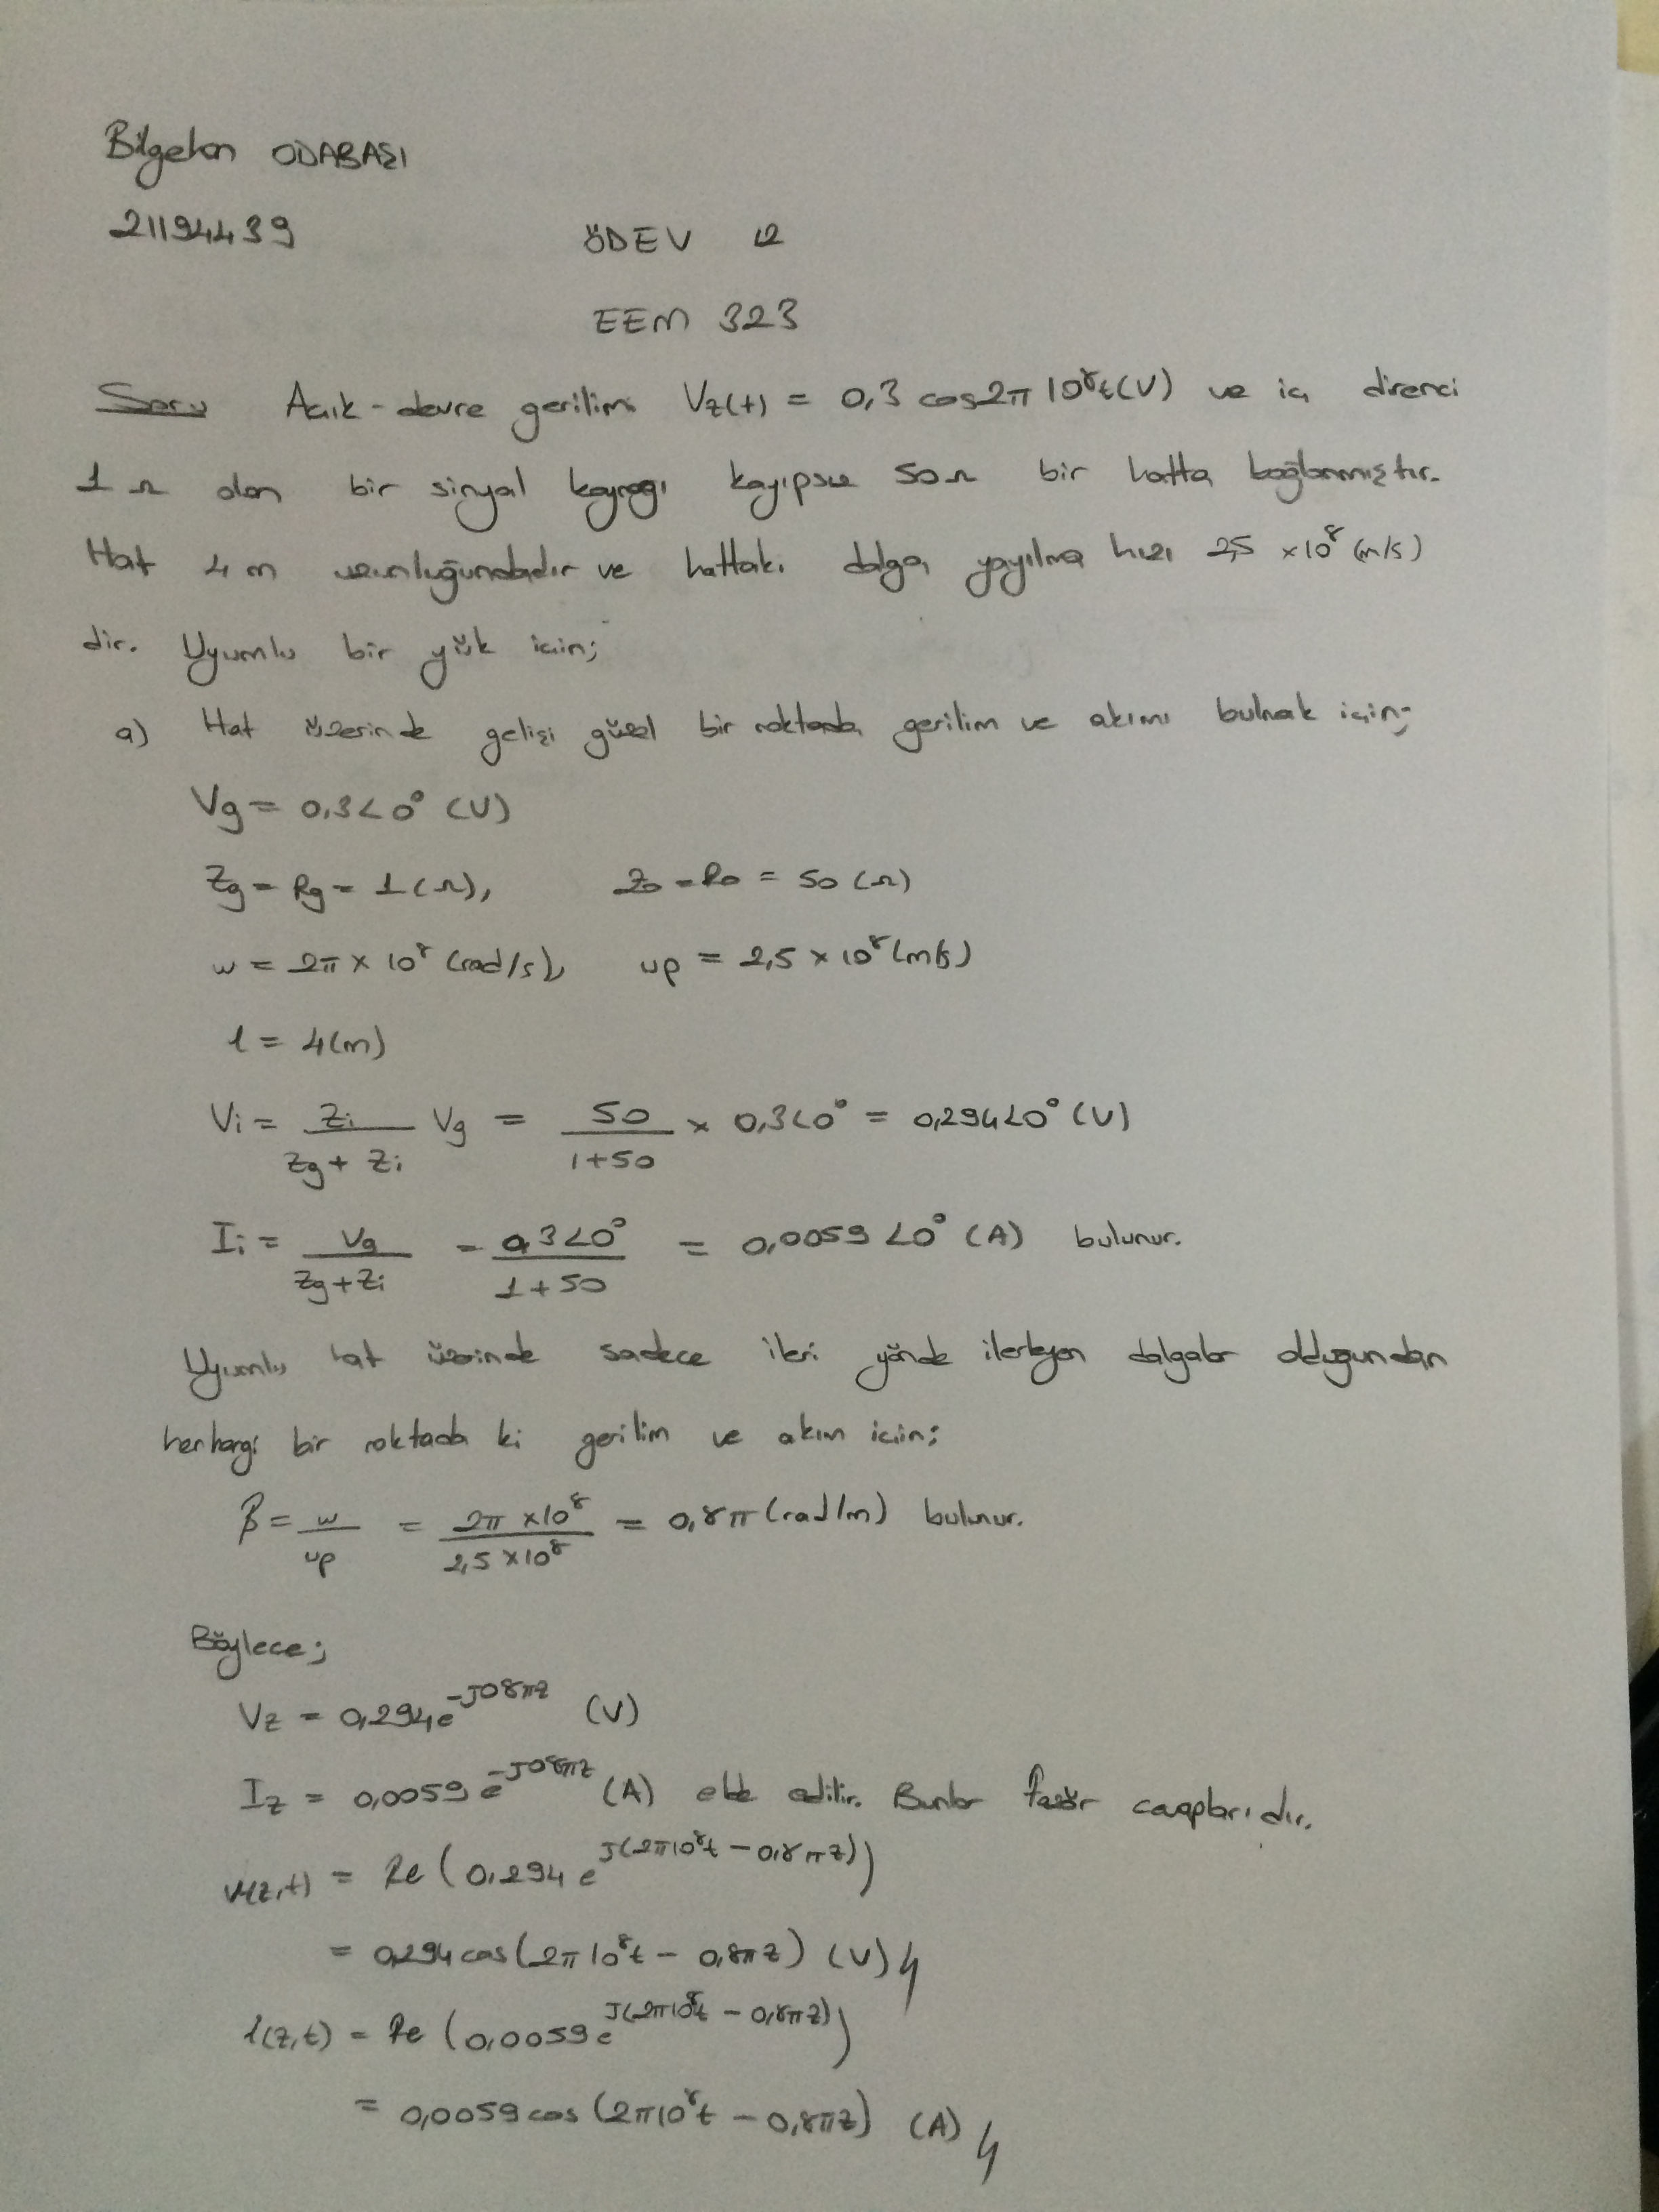 Bilgehan ODABAŞI
21194439
ÖDEV 12
EEM 323
Soru Açık-devre gerilimi Vz(t) = 0,3 cos2π 10⁸t(V) ve iç direnci
1 Ω olan bir sinyal kaynağı kayıpsız 50Ω bir hatta bağlanmıştır.
Hat 4 m uzunluğundadır ve hattaki dalga yayılma hızı 2,5 ×10⁸ (m/s)
dir. Uyumlu bir yük için;
a) Hat üzerinde gelişi güzel bir noktada gerilim ve akımı bulmak için;
Vg = 0,3∠0° (V)
Zg = Rg = 1(Ω), Zo = Ro = 50 (Ω)
w = 2π × 10⁸ (rad/s), up = 2,5 × 10⁸ (m/s)
l = 4(m)
Vi = Zi / (Zg + Zi) Vg = 50 / (1+50) × 0,3∠0° = 0,294∠0° (V)
Ii = Vg / (Zg+Zi) = 0,3∠0° / (1+50) = 0,0059 ∠0° (A) bulunur.
Uyumlu hat üzerinde sadece ileri yönde ilerleyen dalgalar olduğundan
herhangi bir noktada ki gerilim ve akım için;
β = w / up = 2π ×10⁸ / 2,5 ×10⁸ = 0,8π (rad/m) bulunur.
Böylece;
Vz = 0,294e^(-J08πz) (V)
Iz = 0,0059 e^(-J08πz) (A) elde edilir. Bunlar fazör cevaplarıdır.
v(z,t) = Re (0,294 e^(J(2π10⁸t - 0,8πz)))
= 0,294 cos(2π10⁸t - 0,8πz) (V)
i(z,t) = Re (0,0059e^(J(2π10⁸t - 0,8πz)))
= 0,0059 cos (2π10⁸t - 0,8πz) (A)